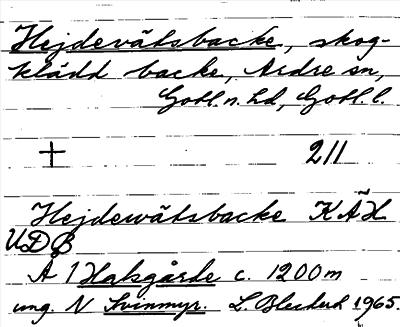 Hejdevätsbacke, skog-
klädd backe, Ardre sn,
Gotl. n. hd, Gotl. l.
+ 211
Hejdewätsbacke KÄH
UDB
A 1 Halsgårde c. 1200 m
ung. N Svinmyr. L. 1965.